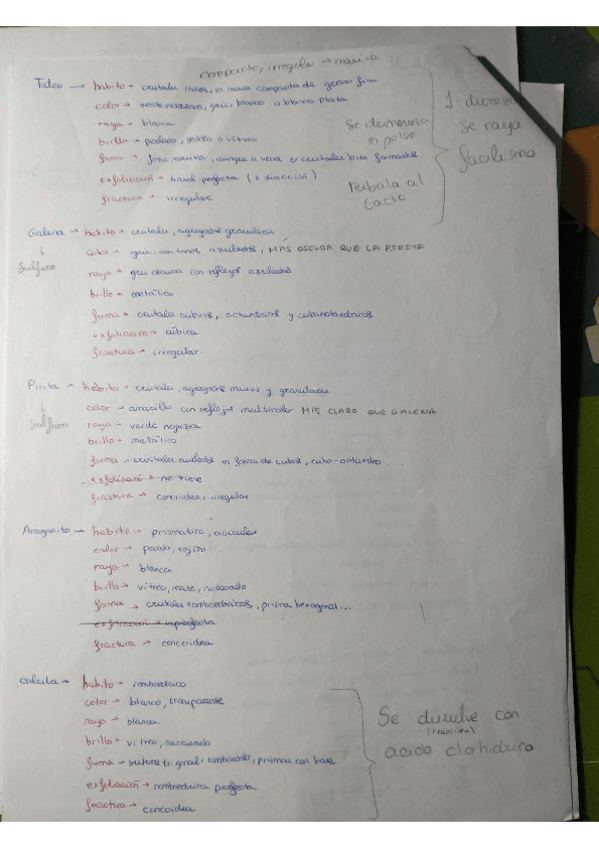 compacto, irregular →
Talco → habito → cristales raros, o masa compacta de grano fino
color → verde manzana, gris, blanco o blanco plata
raya → blanca
brillo → perlado, sedoso o vítreo
forma → forma masiva, aunque a veces en cristales bien formados
exfoliación → basal perfecta (1 dirección)
fractura → irregular
Se desmorona en polvo
resbala al tacto
1 - dureza
se raya
facilismo
Galena → habito → cristales, agregados granulares
↓ color → gris, con tonos azulados, MAS OSCURA QUE LA PIRITA
Sulfuro raya → gris oscura con reflejos azulados
brillo → metálico
forma → cristales cúbicos, octaedricos y cubooctaedricos
exfoliacion → cúbica
fractura → irregular
Pirita → habito → cristales, agregados masivos y granulares
↓ color → amarillo con reflejos multicolor MAS CLARO QUE GALENA
Sulfuro raya → verde negruzca
brillo → metálico
forma → cristales aislados en forma de cubos, cubo-octaedro ...
exfoliación → no tiene
fractura → concoidea, irregular
Aragonito → habito → prismatico, acicular
color → pardo, rojizo ...
raya → blanca
brillo → vítreo, mate, nacarado
forma → cristales romboedricos, prisma hexagonal...
exfoliación → imperfecta
fractura → concoidea
Calcita → habito → romboedrico
color → blanco, transparente
raya → blanca
brillo → vítreo, nacarado
forma → sistema trigonal: romboedro, prismas con base
exfoliación → romboedrica perfecta
fractura → concoidea
Se disuelve con
(reacciona)
acido clohidrico